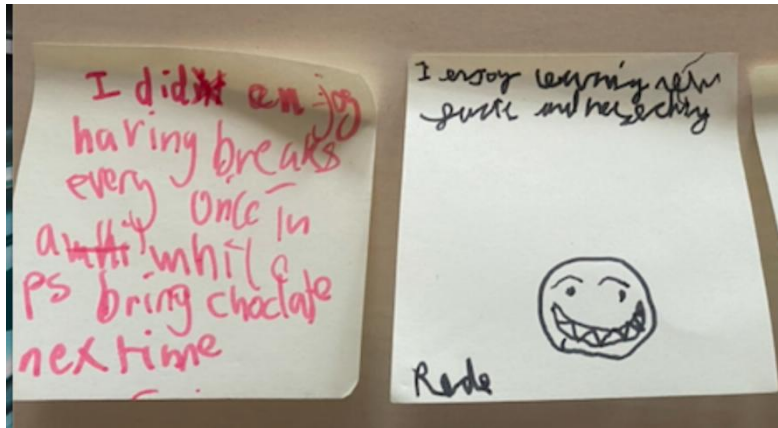 I did enjoy
having breaks
every once in
a while
ps bring choclate
next time
I enjoy learning new
and
Rede